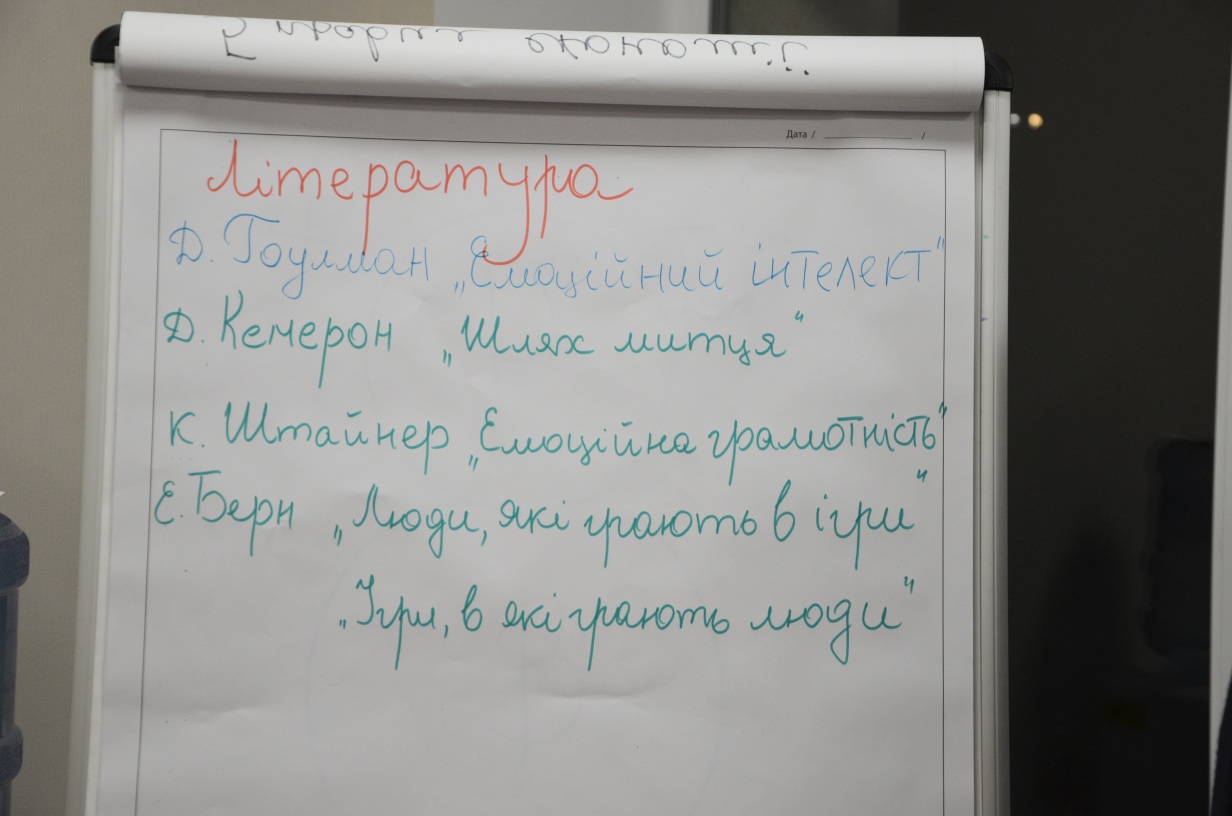 5 правил економії
Дата / ____________ /
Література
Д. Гоулман „Емоційний інтелект"
Д. Кемерон „Шлях митця"
К. Штайнер „Емоційна грамотність"
Е. Берн „Люди, які грають в ігри"
„Ігри, в які грають люди"